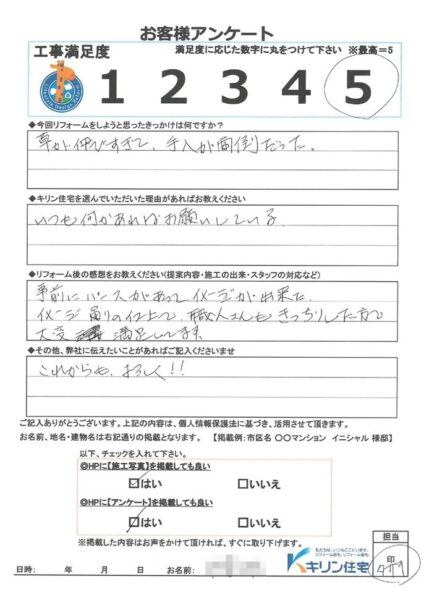 お客様アンケート
工事満足度
満足度に応じた数字に丸をつけて下さい ※最高=5
1 2 3 4 5
◆今回リフォームをしようと思ったきっかけは何ですか?
草が伸びすぎて、手入が面倒だった。
◆キリン住宅を選んでいただいた理由があればお教えください
いつも何かあればお願いしている
◆リフォーム後の感想をお教えください(提案内容・施工の出来・スタッフの対応など)
事前にパースがあってイメージが出来た。
イメージ通りの仕上で、職人さんもきっちりした方で
大変 満足してます
◆その他、弊社に伝えたいことがあればご記入くださいませ
これからも、よろしく!!
ご記入ありがとうございます。上記の内容は、個人情報保護法に基づき、活用させて頂きます。
お名前、地名・建物名は右記通りの掲載となります。 【掲載例:市区名 〇〇マンション イニシャル 様邸】
以下、チェックを入れて下さい。
◎HPに【施工写真】を掲載しても良い
☑はい □いいえ
◎HPに【アンケート】を掲載しても良い
☑はい □いいえ
※掲載した内容はお声をかけて頂ければ、すぐに取り下げます。
担当
印
私たちは、いつもここにいます。
キリン住宅
日時: 年 月 日 お名前: